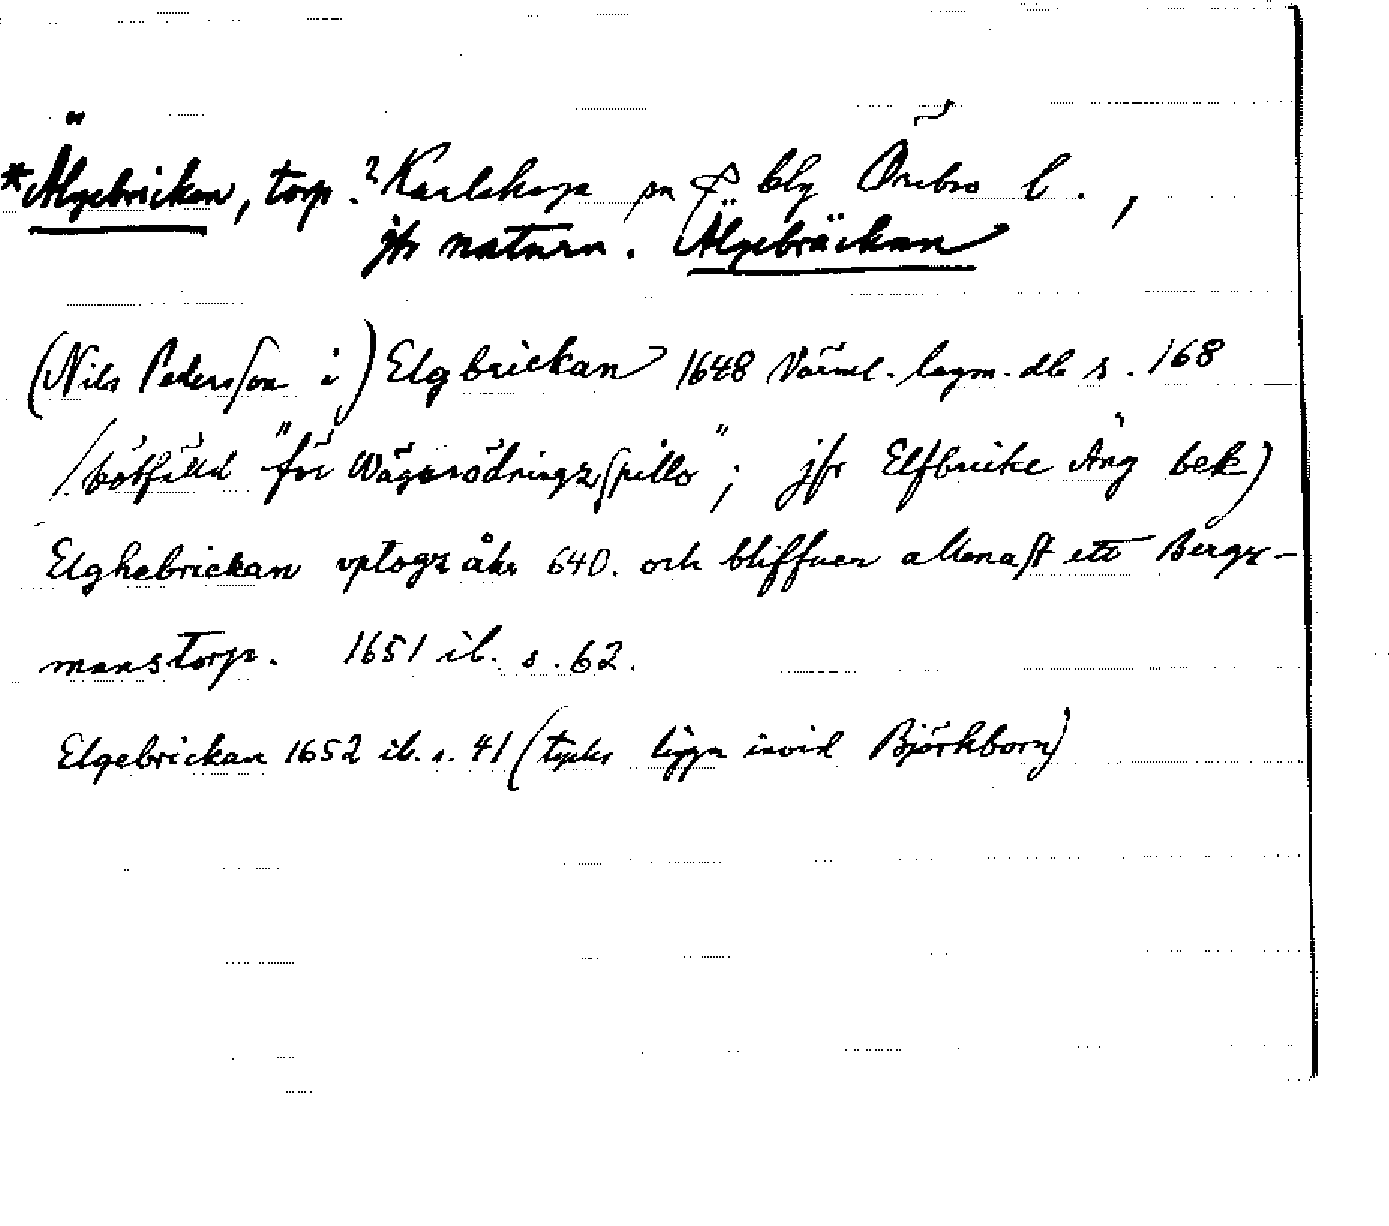 *Älgebrickan, torp.? Karlskoga sn & blg Örebro l.,
jfr naturn. Älgebräckan
(Nils Pedersson i) Elgbrickan 1648 Värml. lagm. db s. 168
(bötfälld "för Wägzrödningzspillo"; jfr Elfbricke Äng bek)
Elghebrickan vptogz åhr 640. och bliffuer allenast ett Bergz-
manstorp. 1651 ib. s. 62.
Elgebrickan 1652 ib. s. 41 (tycks ligga invid Björkborn)